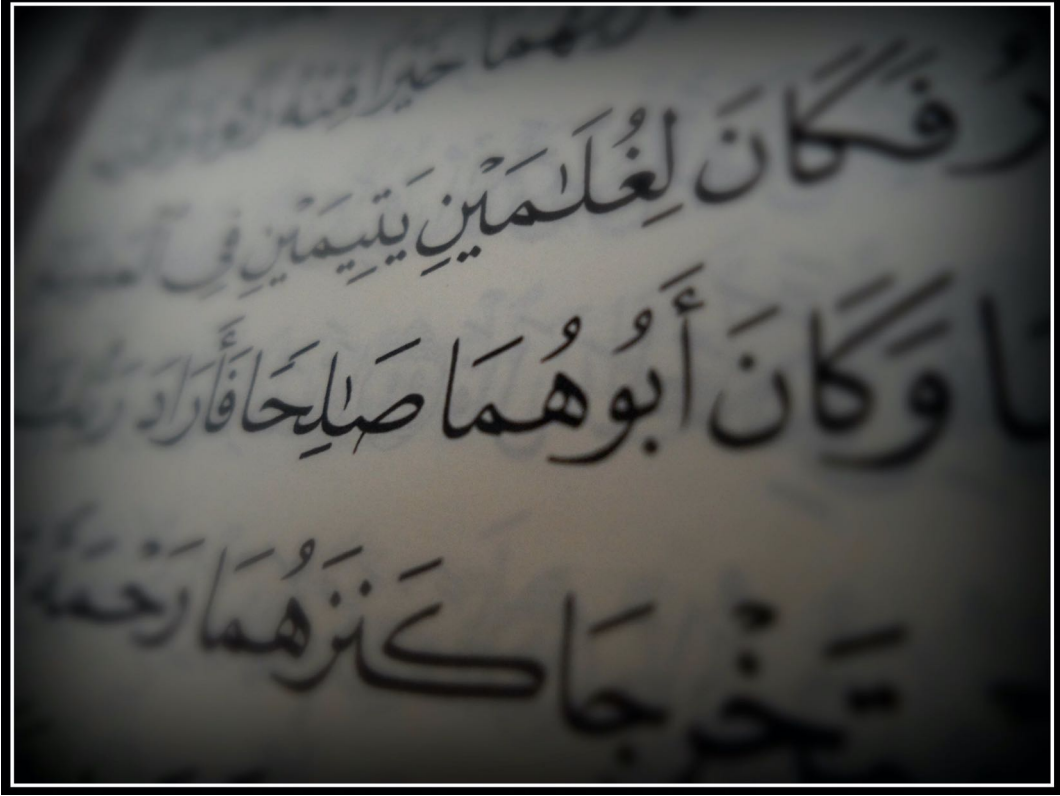 خَيْرًا مِّنْهُ
فَكَانَ لِغُلَٰمَيْنِ يَتِيمَيْنِ فِى
وَكَانَ أَبُوهُمَا صَٰلِحًا فَأَرَادَ رَبُّكَ
تَخْرِجَا كَنزَهُمَا رَحْمَةً